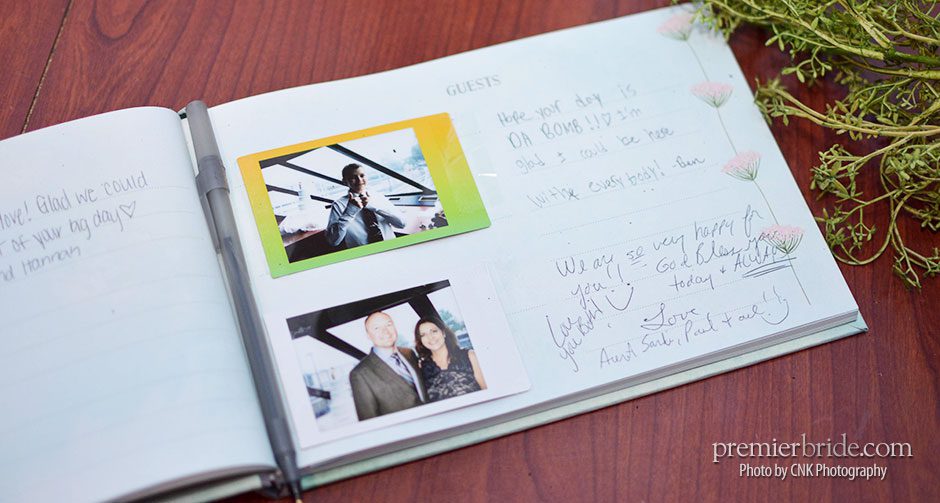 love! Glad we could
of your big day♡
nd Hannah
GUESTS
Hope your day is
DA BOMB!!♡ I'm
glad I could be here
with everybody! - Ben
We are so very happy for
you!! God Bless you
today & ALWAYS
Love
you Both!
Love
Aunt Sarb, Paul &
premierbride.com
Photo by CNK Photography